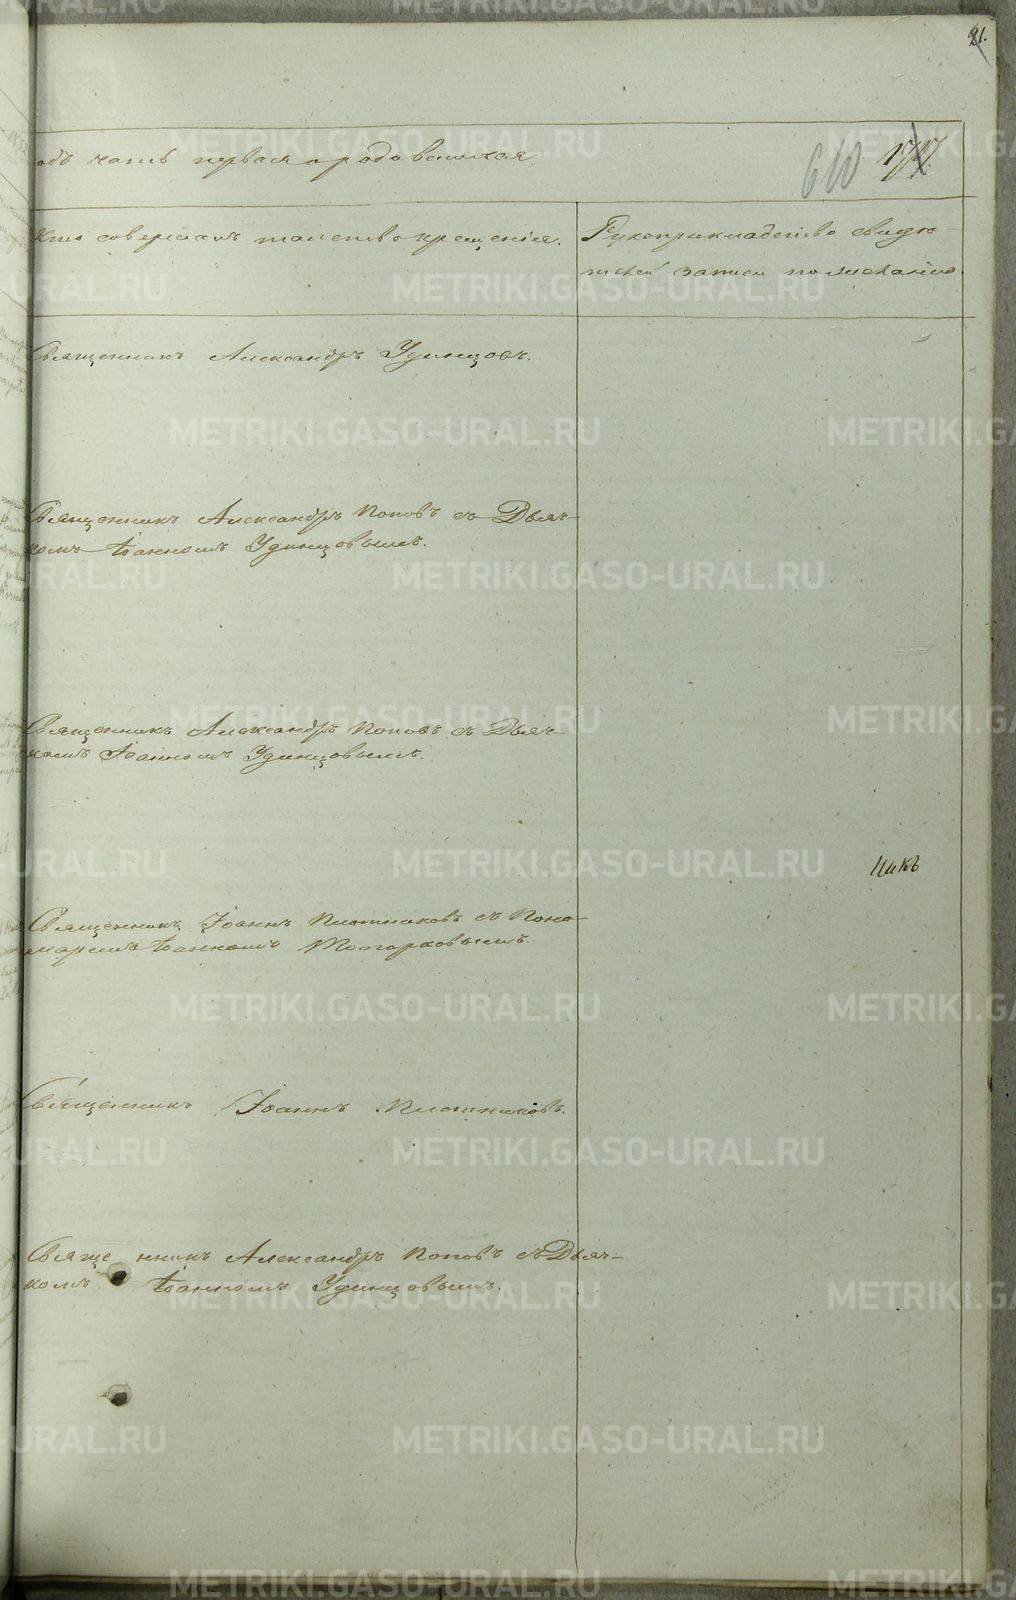 21.
одъ часть первая о родовшихся.
610 177.
Кто совершалъ таинство крещенія.
Рукоприкладство свидѣ-
телей записи по желанію.
Священникъ Александръ Удинцовъ.
Священникъ Александръ Поповъ съ Дьяч-
комъ Іоанномъ Удинцовымъ.
Священникъ Александръ Поповъ съ Дьяч-
комъ Іоанномъ Удинцовымъ.
никъ
Священникъ Іоаннъ Плотниковъ съ Поно-
маремъ Іоанномъ Топорковымъ.
Священникъ Іоаннъ Плотниковъ.
Священникъ Александръ Поповъ съ Дьяч-
комъ Іоанномъ Удинцовымъ.
METRIKI.GASO-URAL.RU